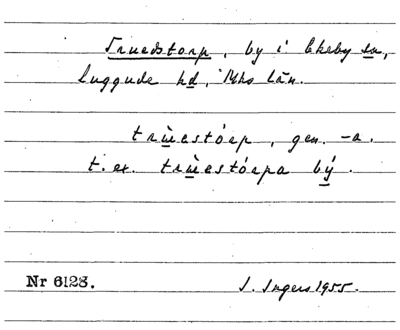 Truedstorp, by i Ekeby sn,
Luggude hd, Mhs län.
trẁestórp, gen. -a.
t. ex. trẁestórpa bý.
Nr 6128. I. Ingers 1955.